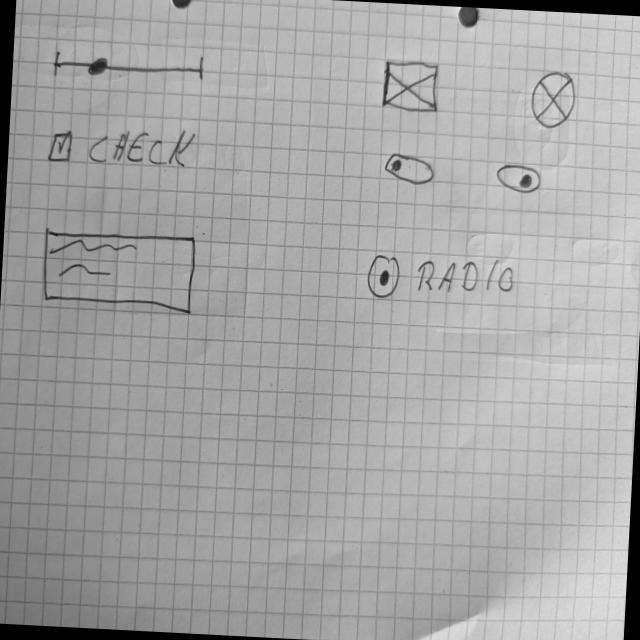 CHECK
RADIO